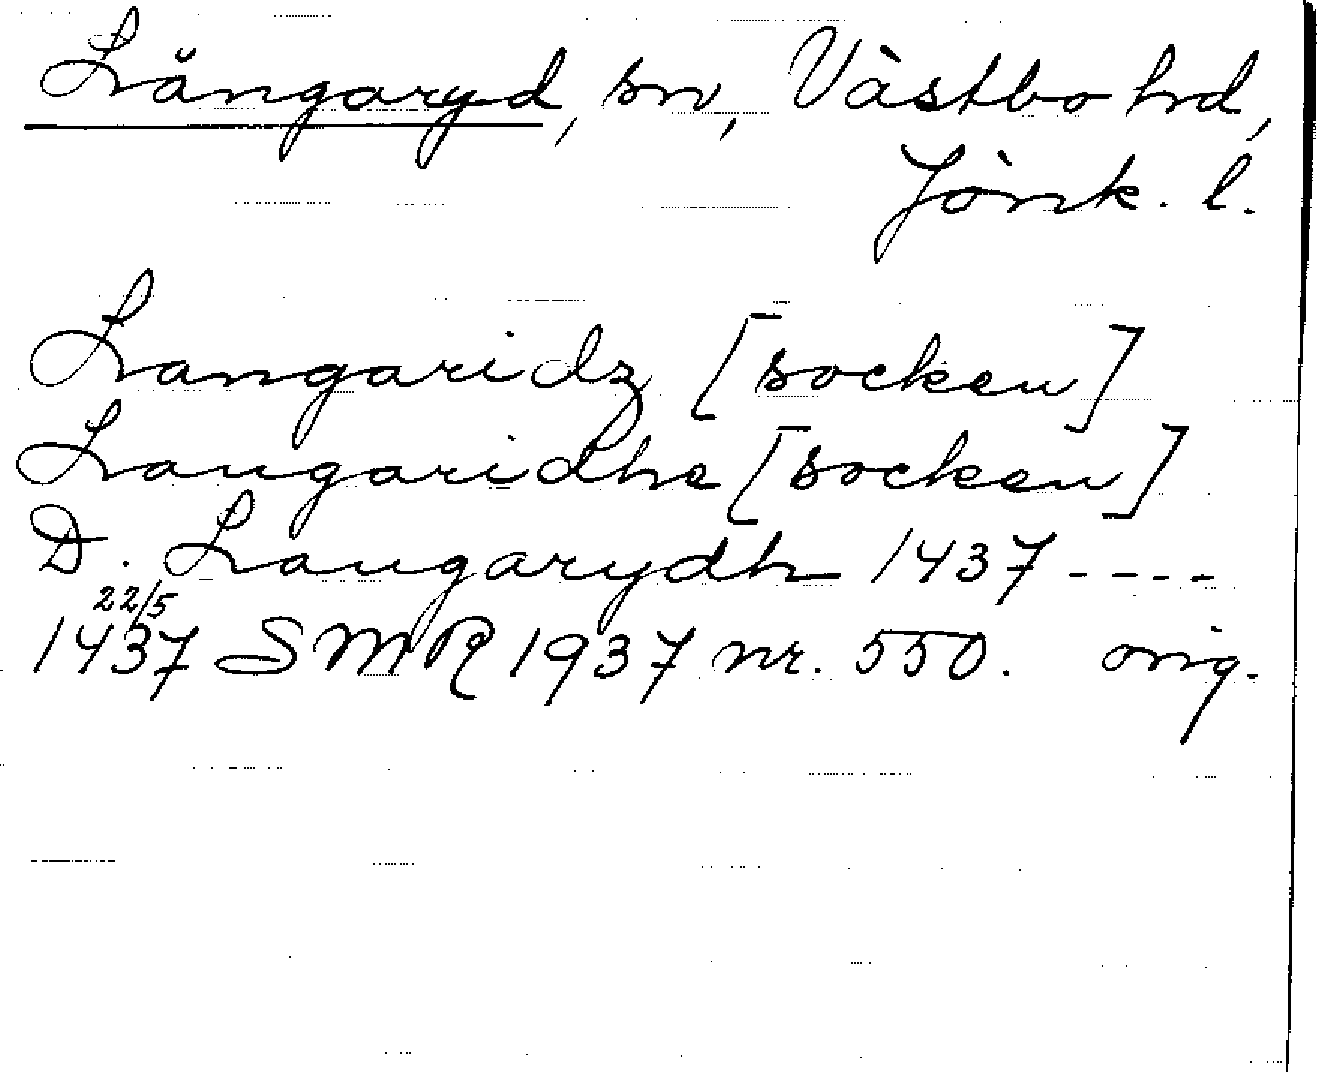 Långaryd, sn, Västbo hd,
Jönk. l.
Langaridz [socken]
Langaridhe [socken]
D. Langarydh 1437 ----
22/5
1437 SMR 1937 nr. 550. orig.